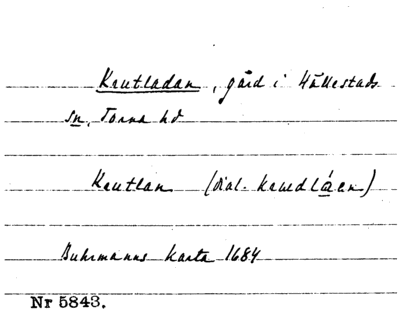 Krutladan, gård i Hällestads
sn, Torna hd
Krutlan (dial. krudláen)
Buhrmanns karta 1684
Nr 5843.